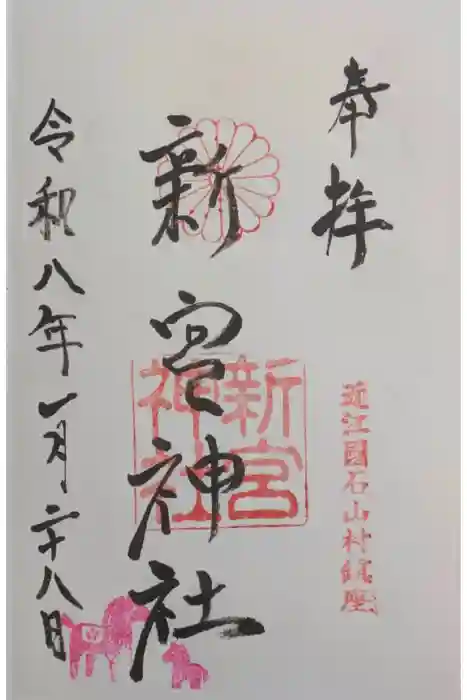 奉拝
近江國石山村鎮座
新宮神社
新宮
神社
令和八年一月二十八日